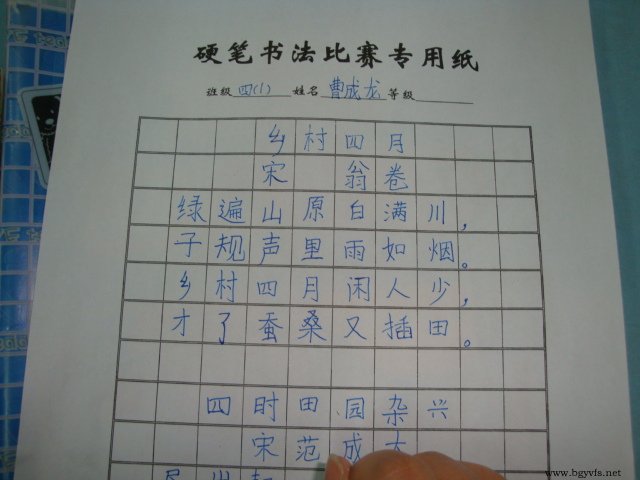 硬笔书法比赛专用纸
班级四(1) 姓名曹成龙等级
乡村四月
宋 翁卷
绿遍山原白满川，
子规声里雨如烟。
乡村四月闲人少，
才了蚕桑又插田。
四时田园杂兴
宋范成大
www.bgyvfs.net